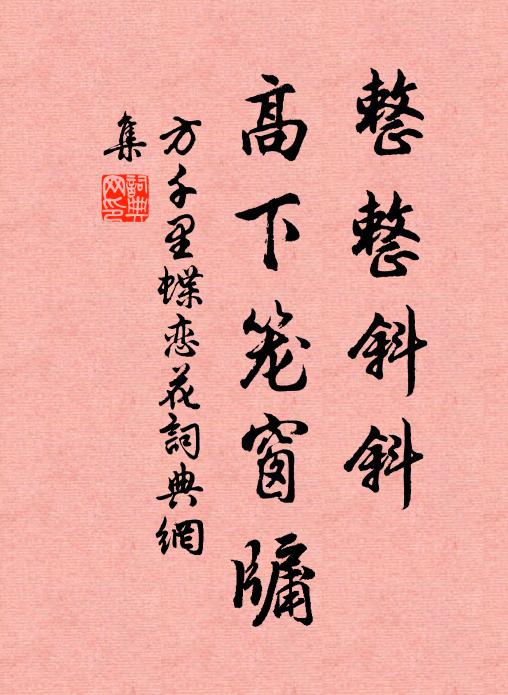 整整斜斜
高下笼窗牖
方千里蝶恋花詞典網
集
詞典
网印